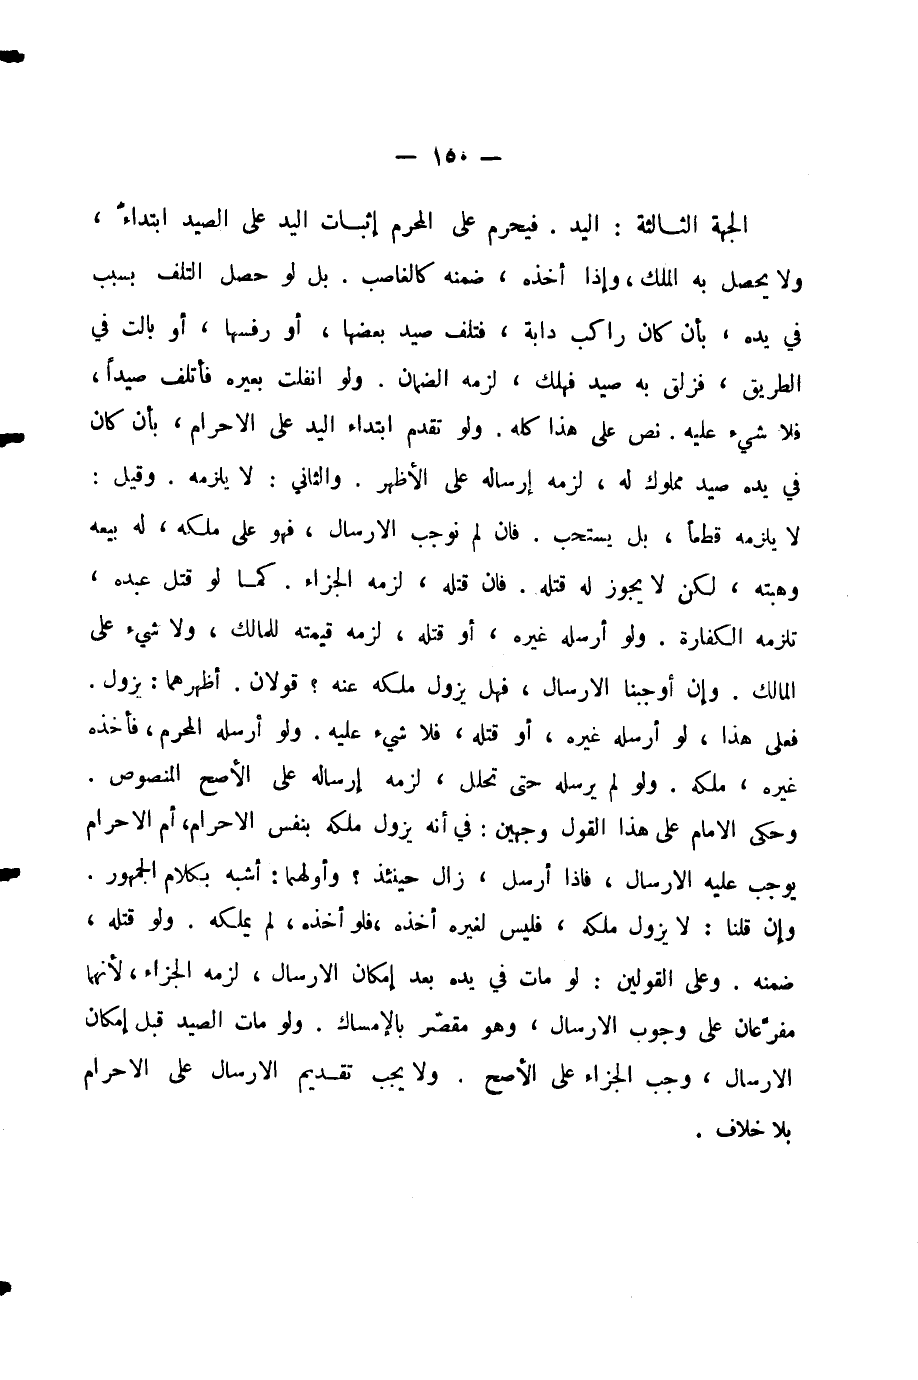 — ١٥٠ —
الجهة الثالثة : اليد . فيحرم على المحرم إثبات اليد على الصيد ابتداءً ،
ولا يحصل به الملك ، وإذا أخذه ، ضمنه كالغاصب . بل لو حصل التلف بسبب
في يده ، بأن كان راكب دابة ، فتلف صيد بعضها ، أو رفسها ، أو بالت في
الطريق ، فزلق به صيد فهلك ، لزمه الضمان . ولو انفلت بعيره فأتلف صيداً ،
فلا شيء عليه . نص على هذا كله . ولو تقدم ابتداء اليد على الاحرام ، بأن كان
في يده صيد مملوك له ، لزمه إرساله على الأظهر . والثاني : لا يلزمه . وقيل :
لا يلزمه قطعاً ، بل يستحب . فان لم نوجب الارسال ، فهو على ملكه ، له بيعه
وهبته ، لكن لا يجوز له قتله . فان قتله ، لزمه الجزاء . كما لو قتل عبده ،
تلزمه الكفارة . ولو أرسله غيره ، أو قتله ، لزمه قيمته للمالك ، ولا شيء على
المالك . وإن أوجبنا الارسال ، فهل يزول ملكه عنه ؟ قولان . أظهرهما : يزول .
فعلى هذا ، لو أرسله غيره ، أو قتله ، فلا شيء عليه . ولو أرسله المحرم ، فأخذه
غيره ، ملكه . ولو لم يرسله حتى تحلل ، لزمه إرساله على الأصح المنصوص .
وحكى الامام على هذا القول وجهين : في أنه يزول ملكه بنفس الاحرام ، أم الاحرام
يوجب عليه الارسال ، فاذا أرسل ، زال حينئذ ؟ وأولهما : أشبه بكلام الجمهور .
وإن قلنا : لا يزول ملكه ، فليس لغيره أخذه ، فلو أخذه ، لم يملكه . ولو قتله ،
ضمنه . وعلى القولين : لو مات في يده بعد إمكان الارسال ، لزمه الجزاء ، لأنها
مفرّعان على وجوب الارسال ، وهو مقصّر بالإمساك . ولو مات الصيد قبل إمكان
الارسال ، وجب الجزاء على الأصح . ولا يجب تقديم الارسال على الاحرام
بلا خلاف .